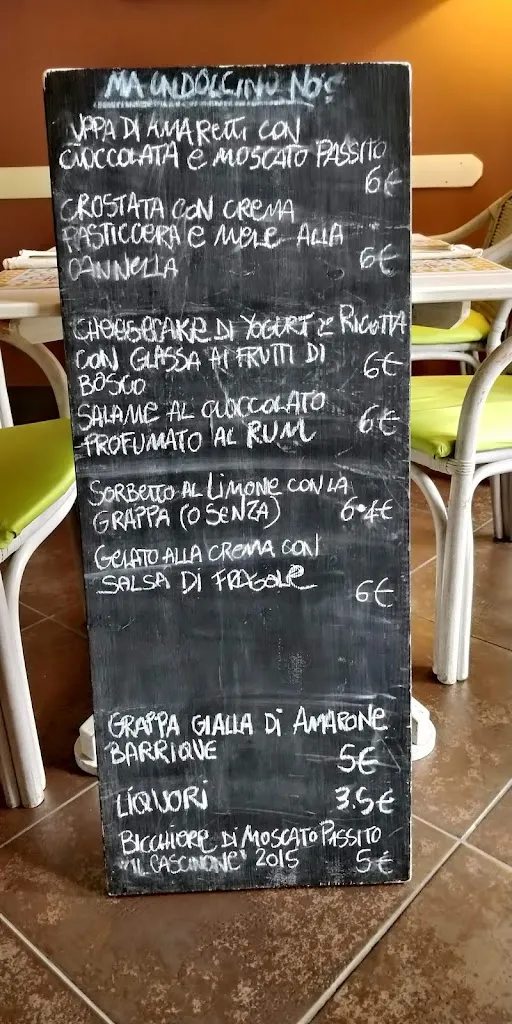 MA UN DOLCINO NO?
DI AMARETTI CON
CIOCCOLATA E MOSCATO PASSITO
6€
CROSTATA CON CREMA
PASTICCERA E MELE ALLA
CANNELLA 6€
CHEESECAKE DI YOGURT E RICOTTA
CON GLASSA AI FRUTTI DI
BOSCO 6€
SALAME AL CIOCCOLATO
PROFUMATO AL RUM 6€
SORBETTO AL LIMONE CON LA
GRAPPA (O SENZA) 6•4€
GELATO ALLA CREMA CON
SALSA DI FRAGOLE
6€
GRAPPA GIALLA DI AMARONE
BARRIQUE 5€
LIQUORI 3.5€
BICCHIERE DI MOSCATO PASSITO
"IL CASCINONE" 2015 5€